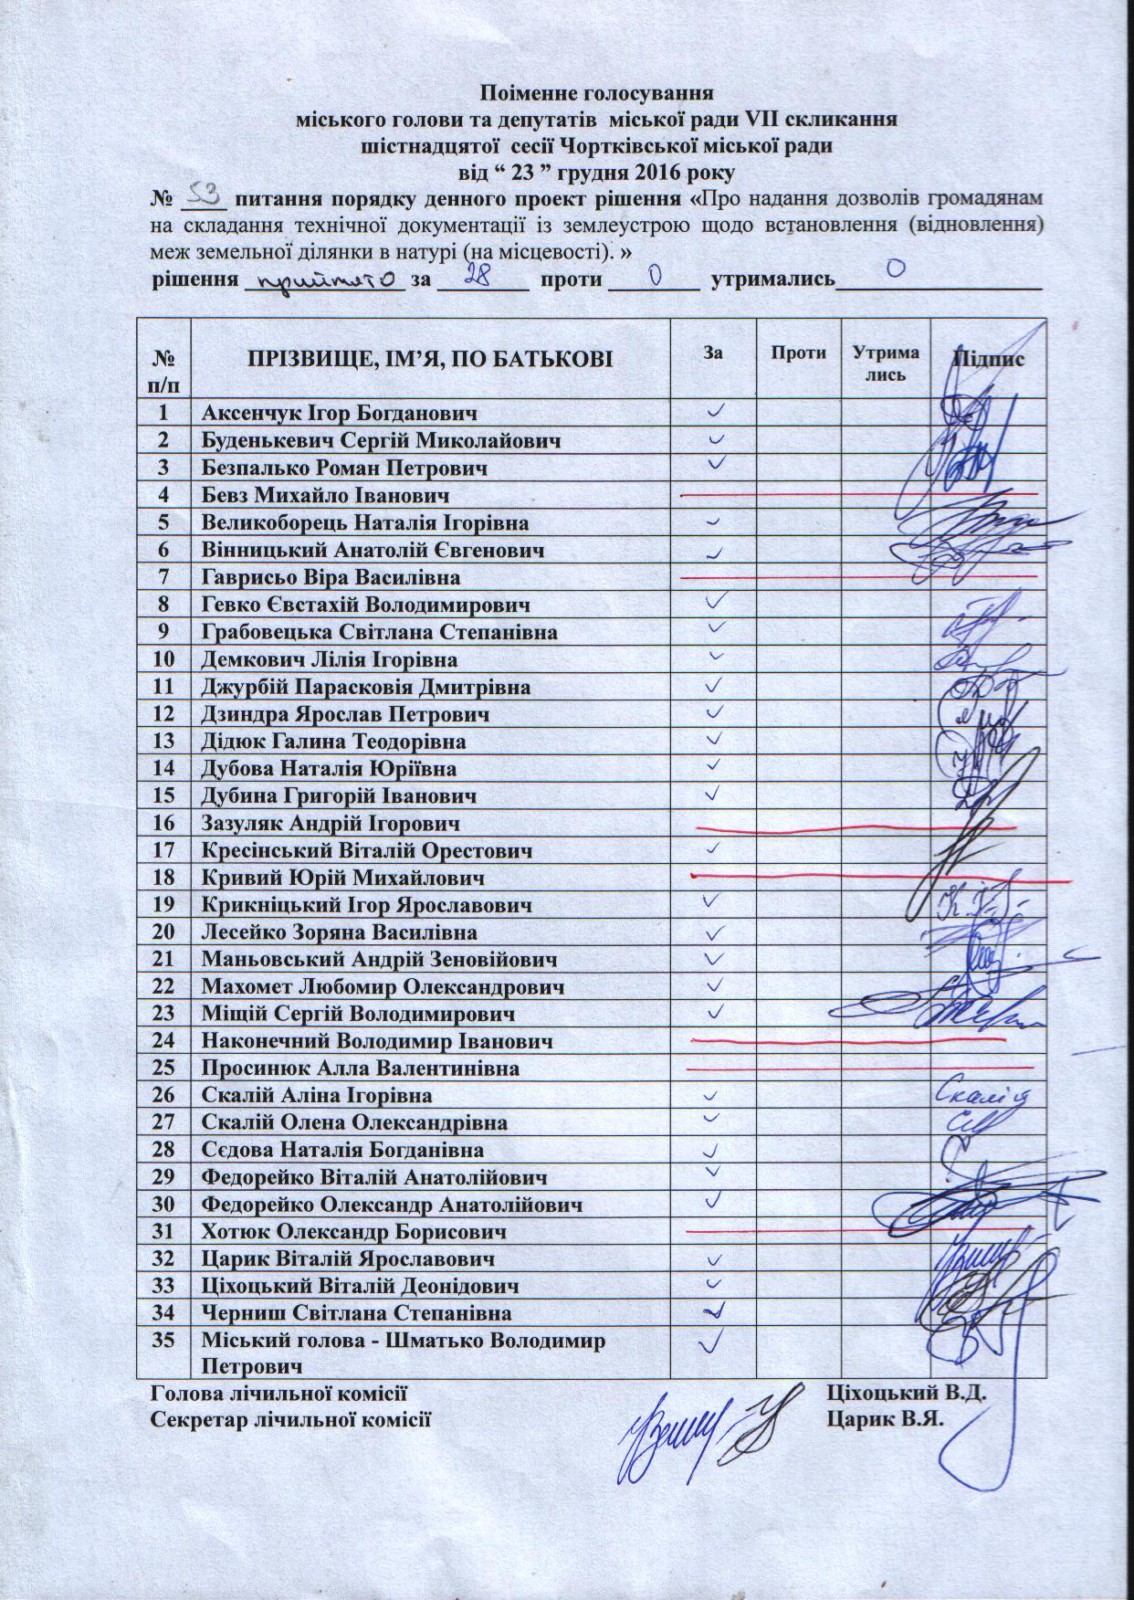 Поіменне голосування
міського голови та депутатів міської ради VII скликання
шістнадцятої сесії Чортківської міської ради
від “ 23 ” грудня 2016 року
№ 53 питання порядку денного проект рішення «Про надання дозволів громадянам
на складання технічної документації із землеустрою щодо встановлення (відновлення)
меж земельної ділянки в натурі (на місцевості). »
рішення прийнято за 28 проти 0 утримались 0
№ п/п ПРІЗВИЩЕ, ІМ’Я, ПО БАТЬКОВІ За Проти Утрима лись Підпис
1 Аксенчук Ігор Богданович
2 Буденькевич Сергій Миколайович
3 Безпалько Роман Петрович
4 Бевз Михайло Іванович
5 Великоборець Наталія Ігорівна
6 Вінницький Анатолій Євгенович
7 Гаврисьо Віра Василівна
8 Гевко Євстахій Володимирович
9 Грабовецька Світлана Степанівна
10 Демкович Лілія Ігорівна
11 Джурбій Парасковія Дмитрівна
12 Дзиндра Ярослав Петрович
13 Дідюк Галина Теодорівна
14 Дубова Наталія Юріївна
15 Дубина Григорій Іванович
16 Зазуляк Андрій Ігорович
17 Кресінський Віталій Орестович
18 Кривий Юрій Михайлович
19 Крикніцький Ігор Ярославович
20 Лесейко Зоряна Василівна
21 Маньовський Андрій Зеновійович
22 Махомет Любомир Олександрович
23 Міщій Сергій Володимирович
24 Наконечний Володимир Іванович
25 Просинюк Алла Валентинівна
26 Скалій Аліна Ігорівна
27 Скалій Олена Олександрівна
28 Сєдова Наталія Богданівна
29 Федорейко Віталій Анатолійович
30 Федорейко Олександр Анатолійович
31 Хотюк Олександр Борисович
32 Царик Віталій Ярославович
33 Ціхоцький Віталій Деонідович
34 Черниш Світлана Степанівна
35 Міський голова - Шматько Володимир
Петрович
Голова лічильної комісії Ціхоцький В.Д.
Секретар лічильної комісії Царик В.Я.